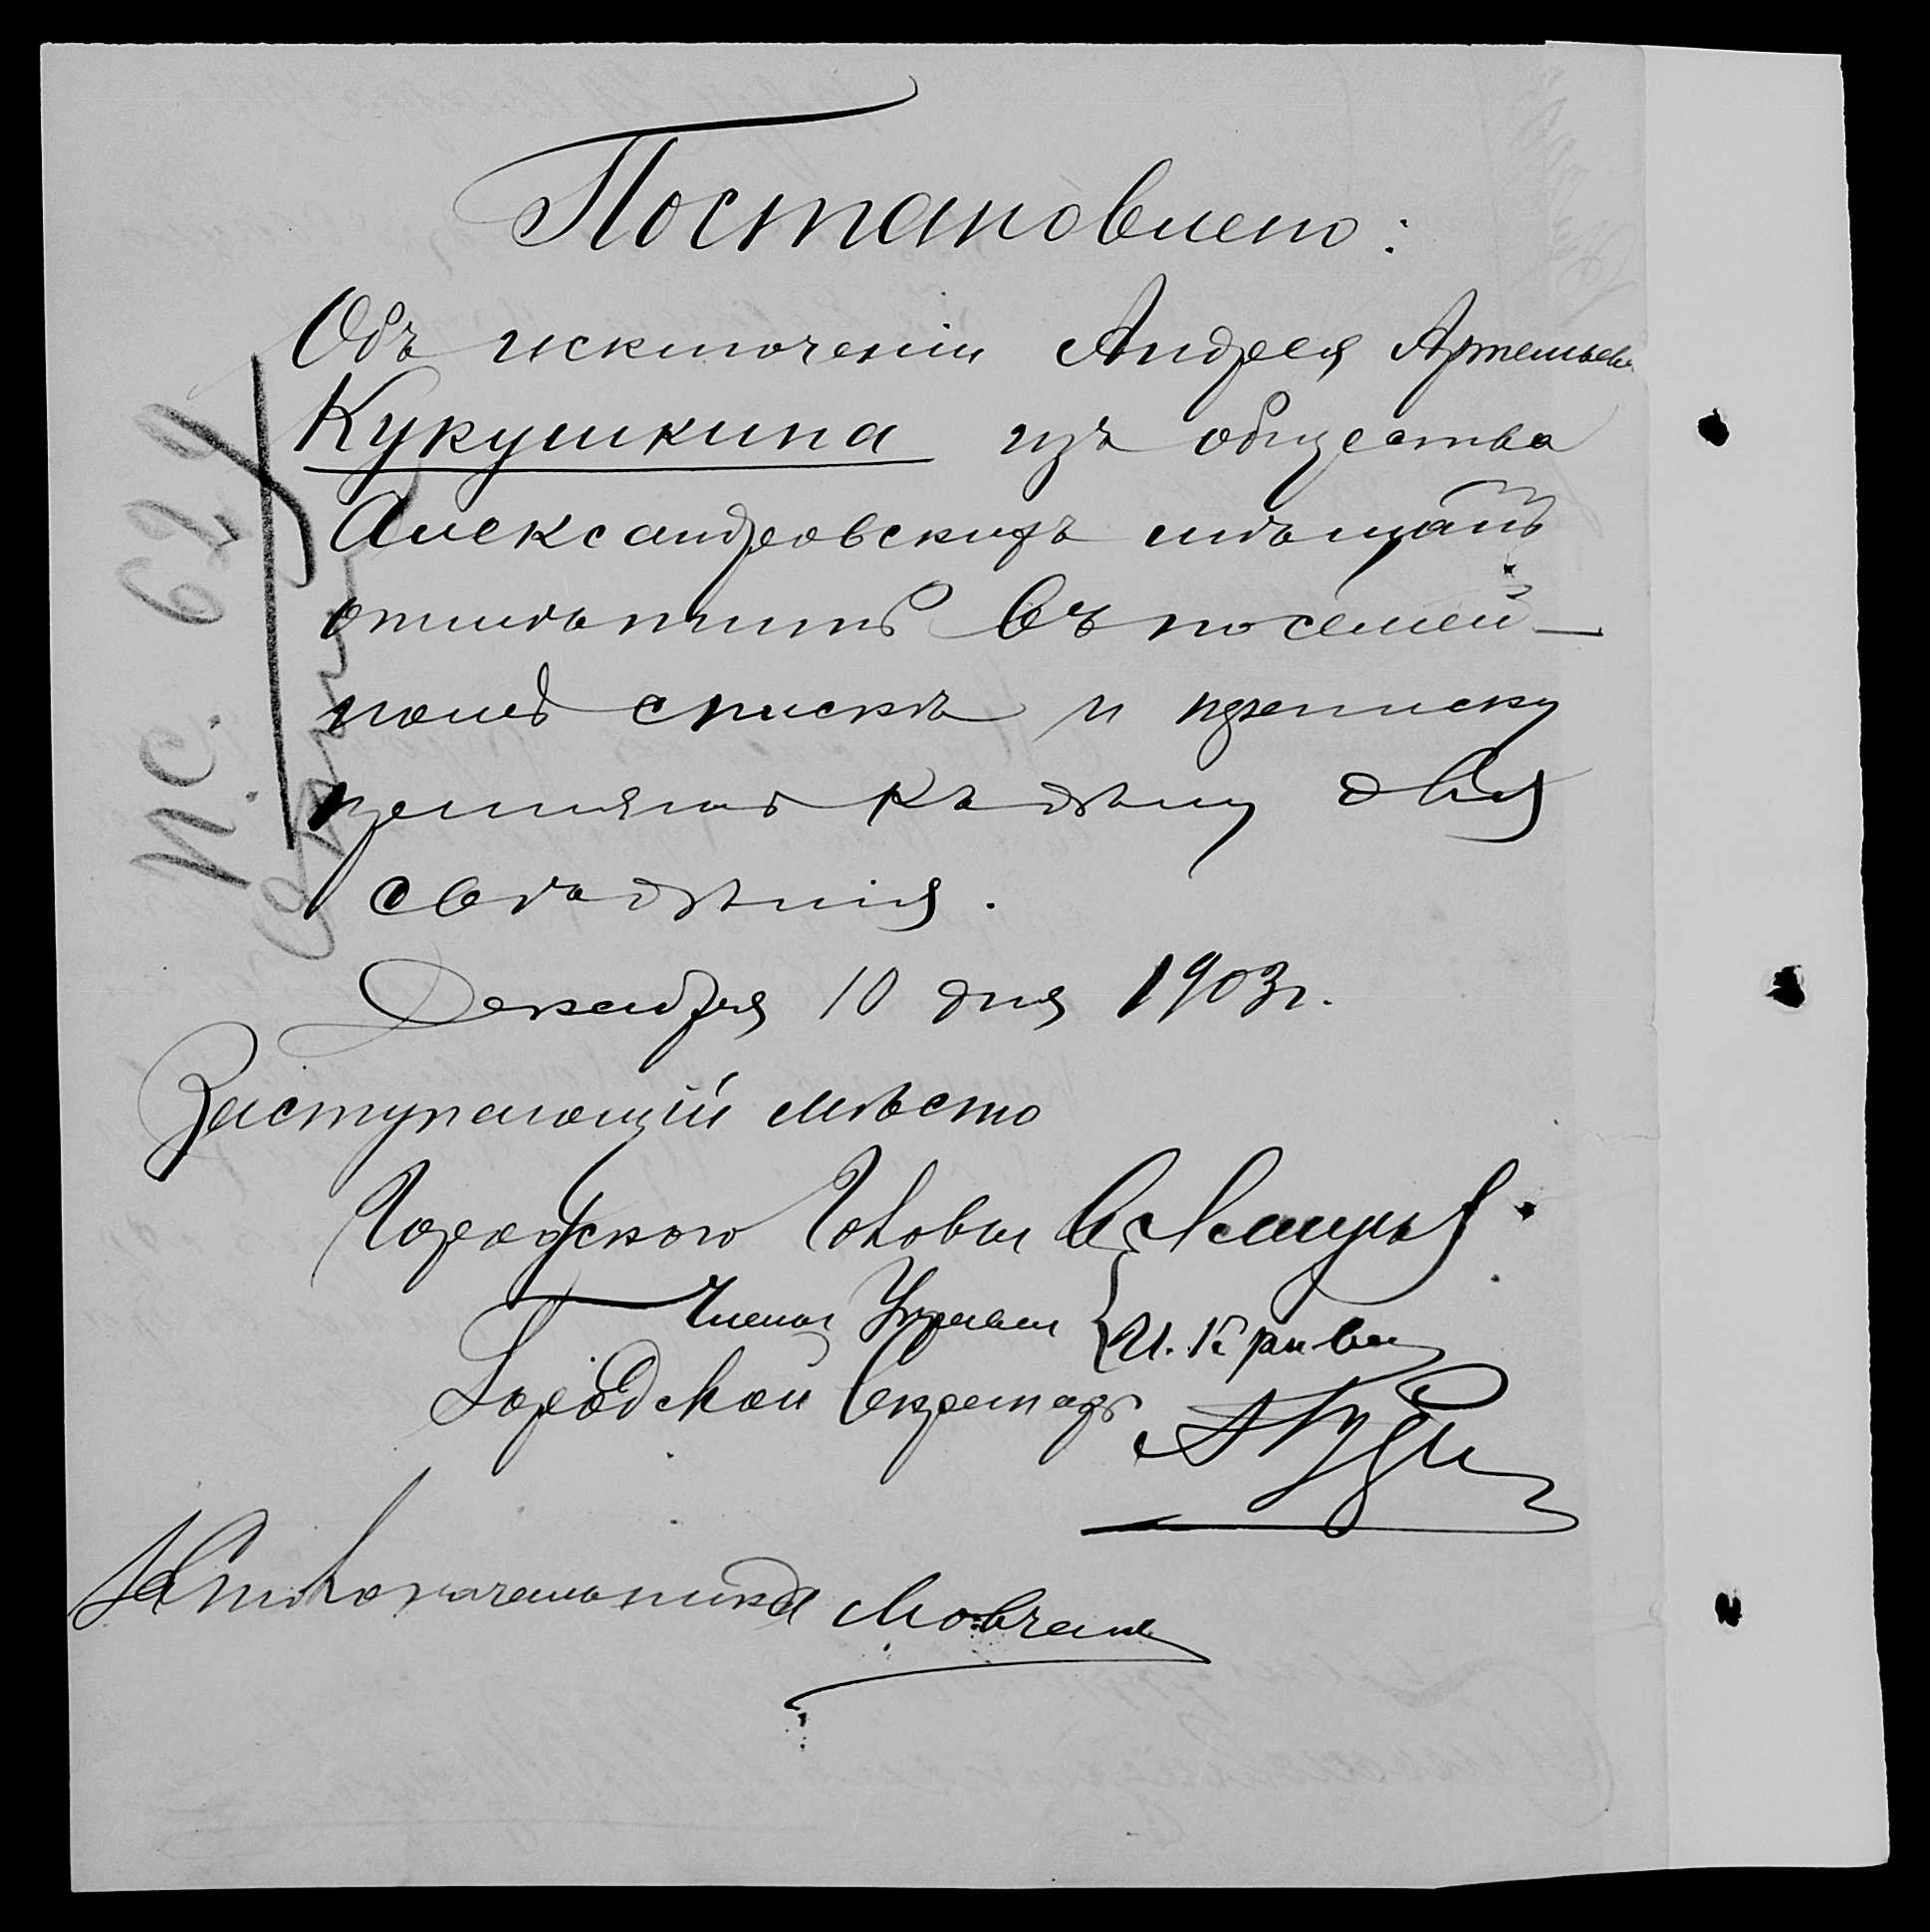 Постановлено:
Объ исключеніи Андрея Артемьева
Кукушкина изъ общества
Александровскихъ мѣщанъ
отмѣтить въ посемей-
номъ спискѣ и переписку
принять къ дѣлу для
свѣдѣнія.
Декабря 10 дня 1903 г.
Заступающій мѣсто
Городского Головы
Члены Управы
Городской Секретарь
За Столоначальника Мовчанъ
П.С. 629